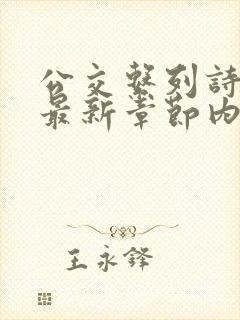 公交繫列詩
最新章節內
王永鋒